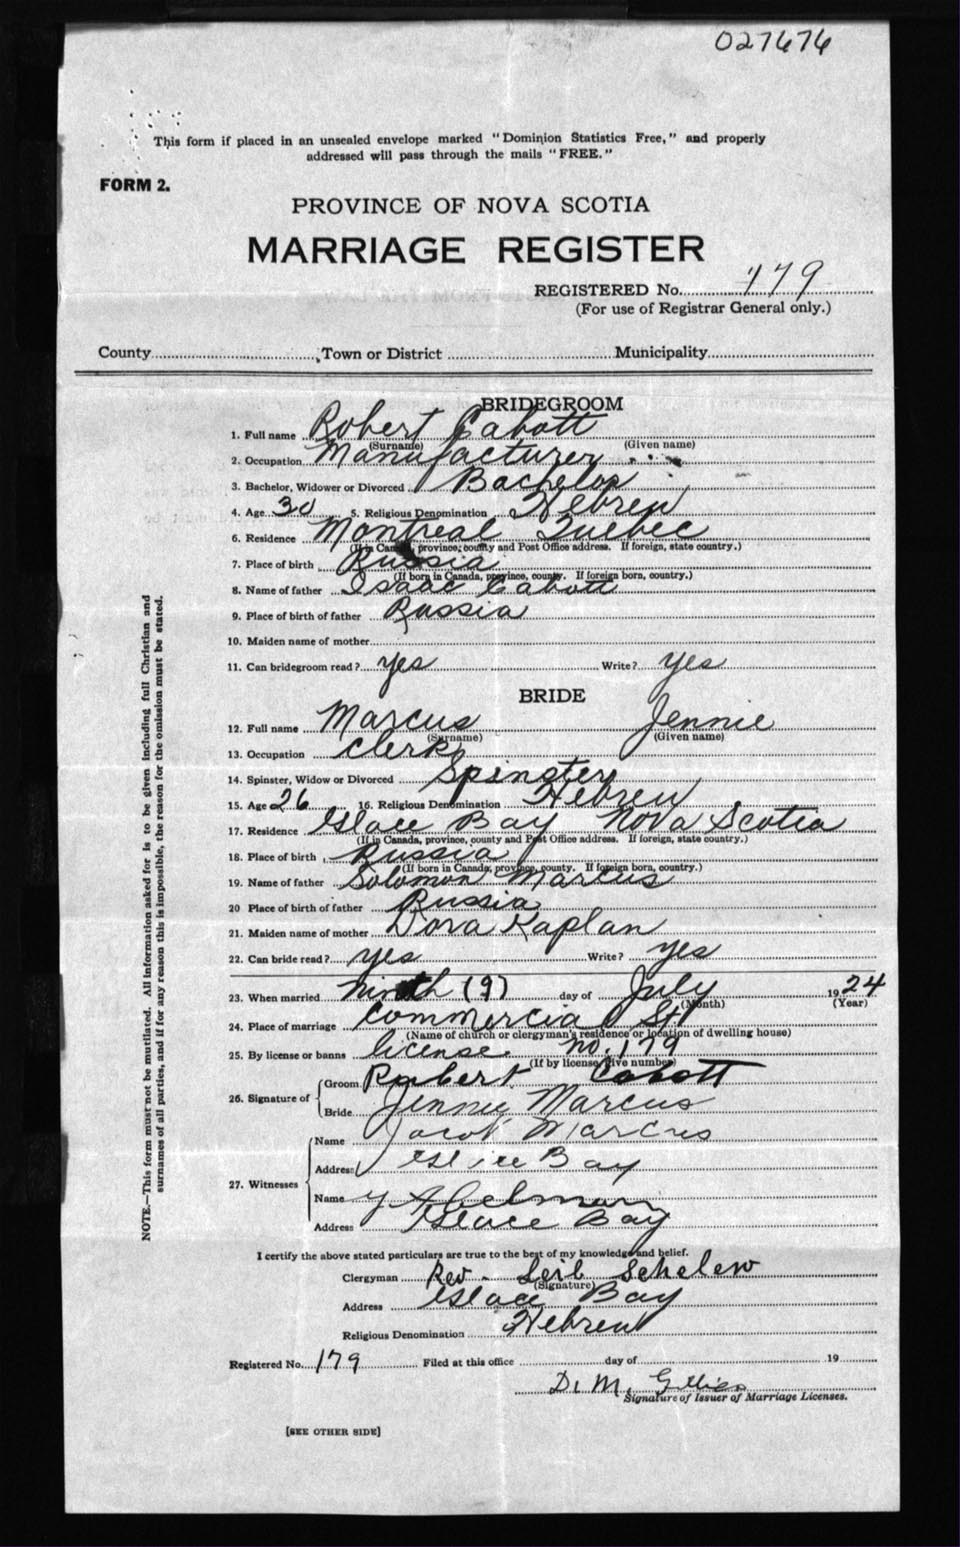 027676
This form if placed in an unsealed envelope marked "Dominion Statistics Free," and properly
addressed will pass through the mails "FREE."
FORM 2.
PROVINCE OF NOVA SCOTIA
MARRIAGE REGISTER
REGISTERED No. 179
(For use of Registrar General only.)
County Town or District Municipality
BRIDEGROOM
1. Full name Robert Cabott
(Surname) (Given name)
2. Occupation Manufacturer
3. Bachelor, Widower or Divorced Bachelor
4. Age 30 5. Religious Denomination Hebrew
6. Residence Montreal Quebec
(If in Canada, province, county and Post Office address. If foreign, state country.)
7. Place of birth Russia
(If born in Canada, province, county. If foreign born, country.)
8. Name of father Isaac Cabott
9. Place of birth of father Russia
10. Maiden name of mother
11. Can bridegroom read? yes Write? yes
BRIDE
12. Full name Marcus Jennie
(Surname) (Given name)
13. Occupation Clerk
14. Spinster, Widow or Divorced Spinster
15. Age 26 16. Religious Denomination Hebrew
17. Residence Glace Bay Nova Scotia
(If in Canada, province, county and Post Office address. If foreign, state country.)
18. Place of birth Russia
(If born in Canada, province, county. If foreign born, country.)
19. Name of father Solomon Marcus
20 Place of birth of father Russia
21. Maiden name of mother Dora Kaplan
22. Can bride read? yes Write? yes
23. When married ninth (9) day of July 1924
(Month) (Year)
24. Place of marriage Commercial St
(Name of church or clergyman's residence or location of dwelling house)
25. By license or banns license no. 179
(If by license, give number)
26. Signature of Groom Robert Cabott
Bride Jennie Marcus
27. Witnesses Name Jacob Marcus
Address Glace Bay
Name Y Abelman
Address Glace Bay
I certify the above stated particulars are true to the best of my knowledge and belief.
Clergyman Rev. Leib Schelew
(Signature)
Address Glace Bay
Religious Denomination Hebrew
Registered No. 179 Filed at this office day of 19
D. M. Gillies
Signature of Issuer of Marriage Licenses.
[SEE OTHER SIDE]
NOTE.—This form must not be mutilated. All information asked for is to be given including full Christian and
surnames of all parties, and if for any reason this is impossible, the reason for the omission must be stated.